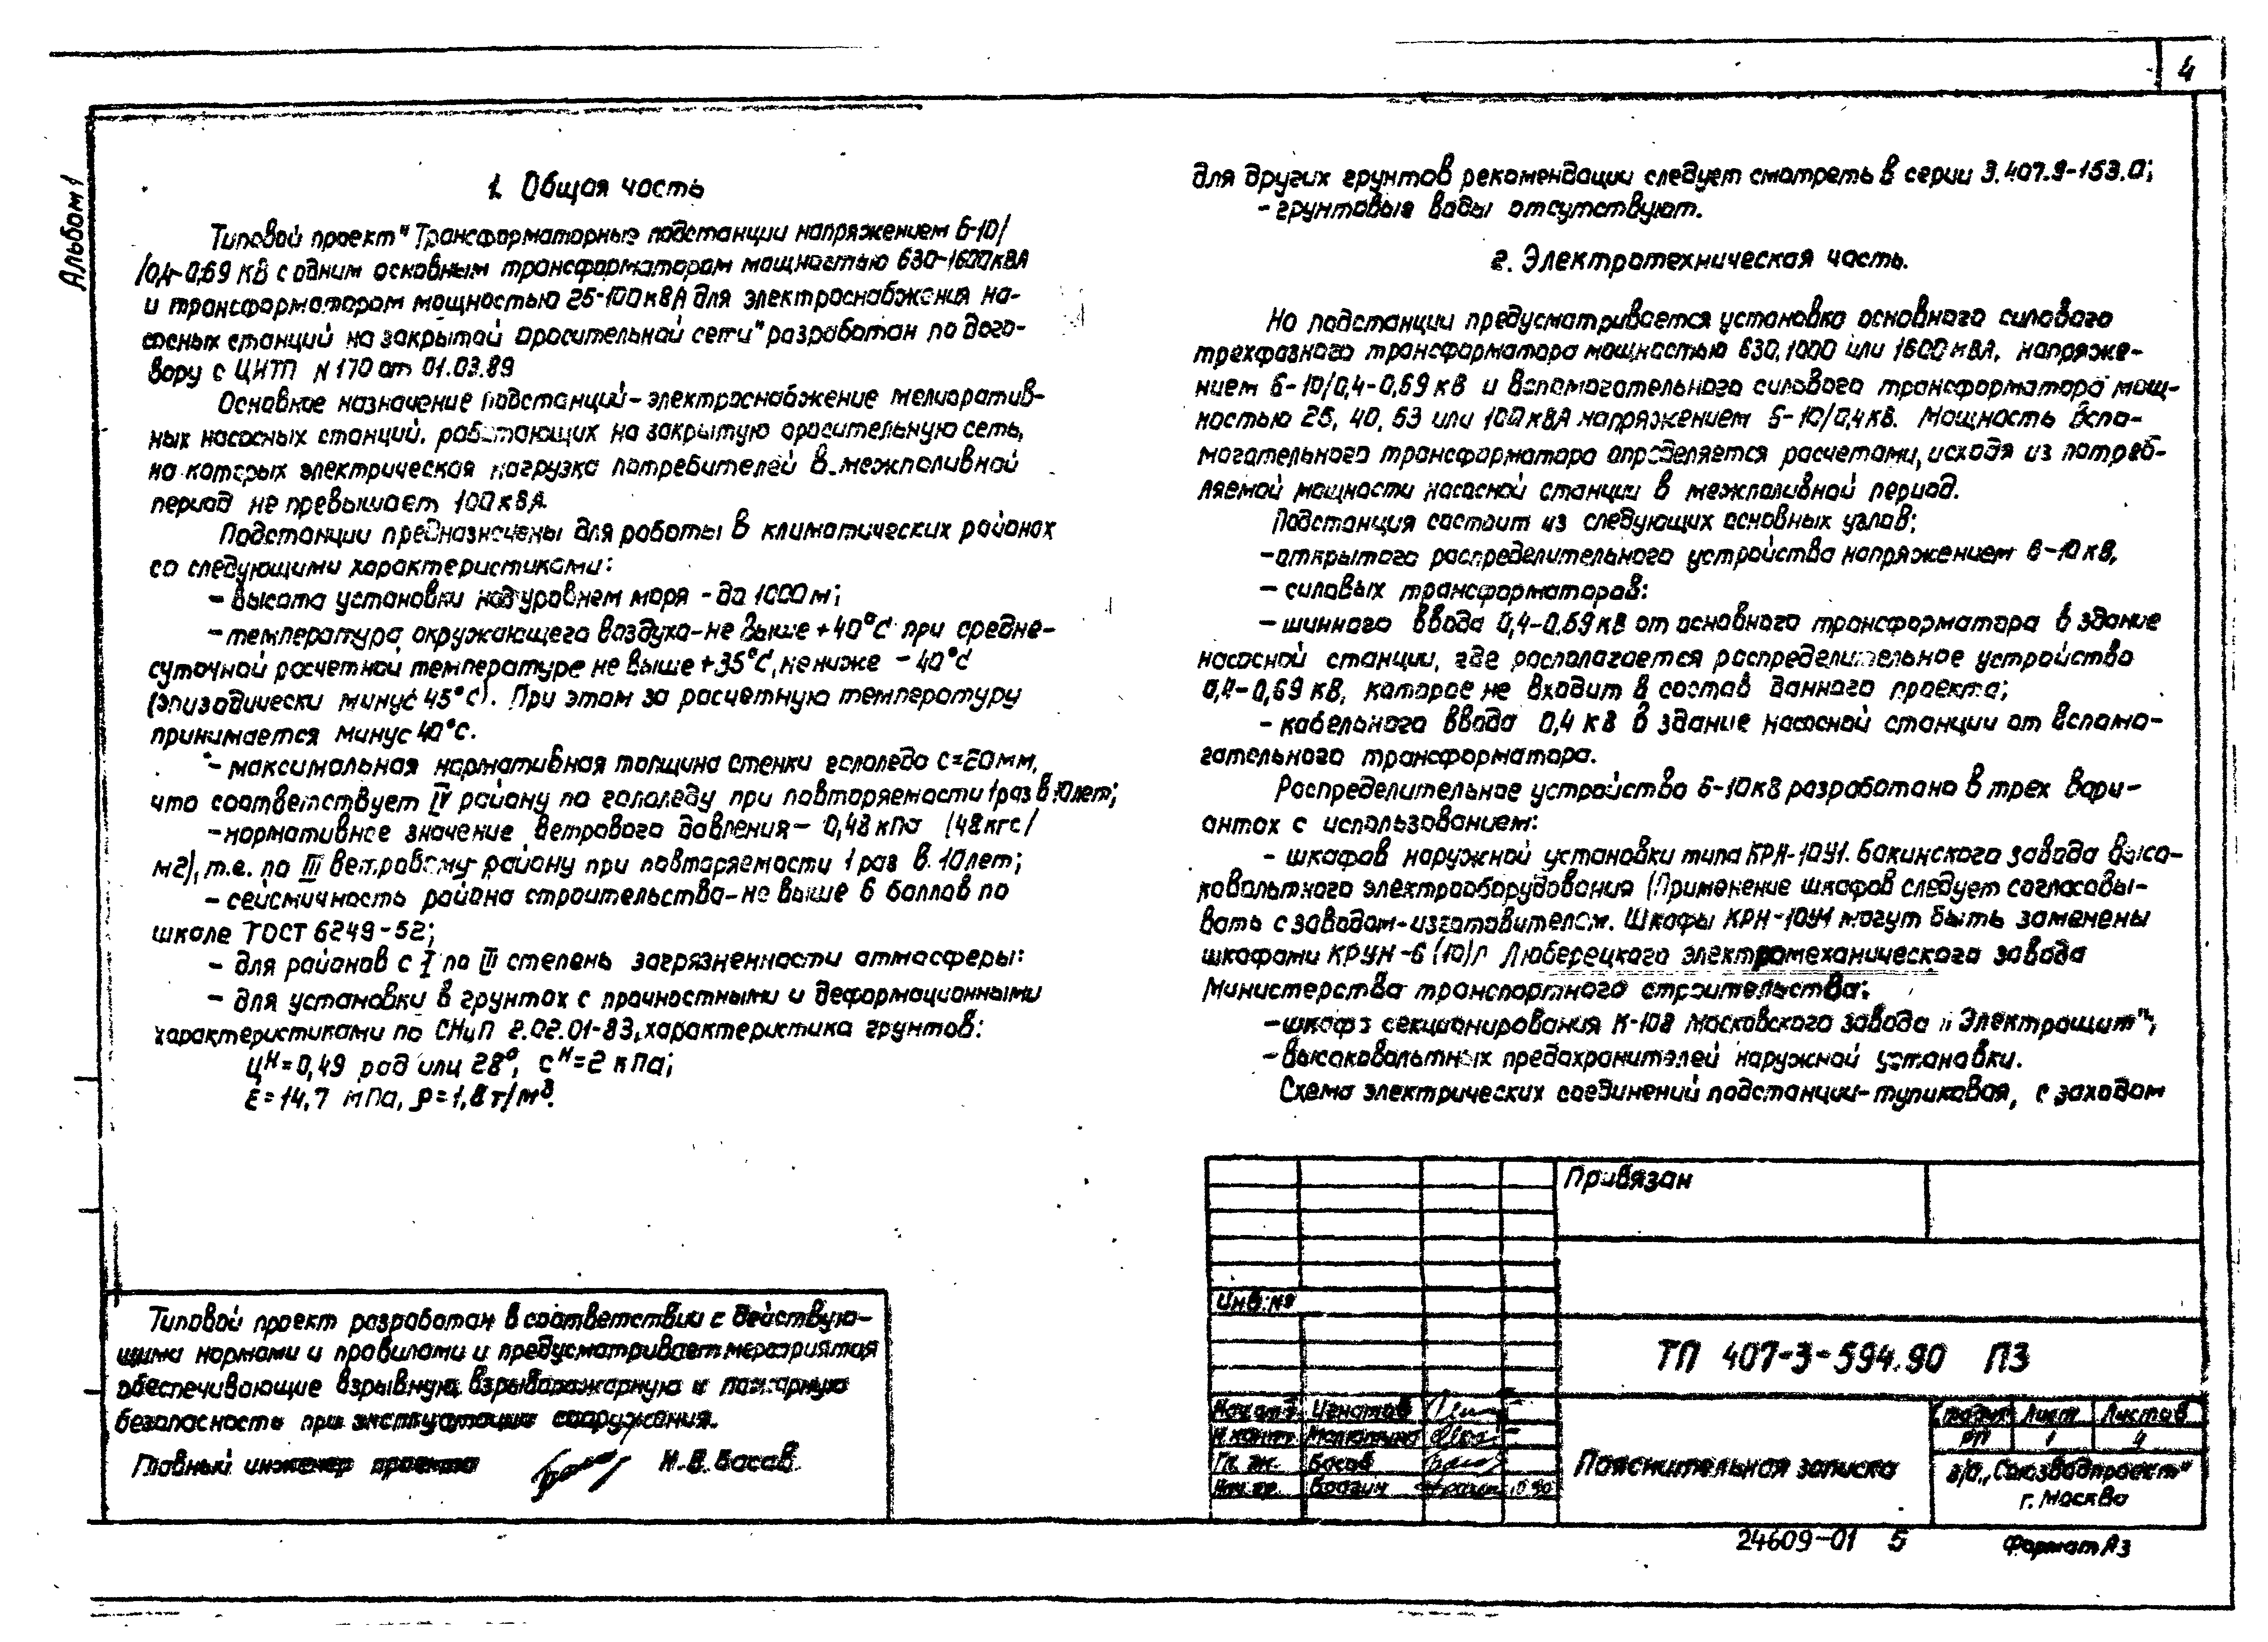 4
Альбом 1
1. Общая часть
Типовой проект "Трансформаторные подстанции напряжением 6-10/
/0,4-0,69 кВ с одним основным трансформатором мощностью 630-1600 кВА
и трансформатором мощностью 25-100 кВА для электроснабжения на-
сосных станций на закрытой оросительной сети" разработан по дого-
вору с ЦИТП N 170 от 01.03.89
Основное назначение подстанций - электроснабжение мелиоратив-
ных насосных станций, работающих на закрытую оросительную сеть,
на которых электрическая нагрузка потребителей в межполивной
период не превышает 100 кВА.
Подстанции предназначены для работы в климатических районах
со следующими характеристиками:
- высота установки над уровнем моря - до 1000 м;
- температура окружающего воздуха - не выше +40°С при средне-
суточной расчетной температуре не выше +35°С, не ниже - 40°С
(эпизодически минус 45°С). При этом за расчетную температуру
принимается минус 40°С.
- максимальная нормативная толщина стенки гололеда С=20мм,
что соответствует IV району по гололеду при повторяемости 1 раз в 10 лет;
- нормативное значение ветрового давления - 0,48 кПа (48 кгс/
м2), т.е. по III ветровому району при повторяемости 1 раз в 10 лет;
- сейсмичность района строительства - не выше 6 баллов по
шкале ГОСТ 6249-52;
- для районов с I по III степень загрязненности атмосферы:
- для установки в грунтах с прочностными и деформационными
характеристиками по СНиП 2.02.01-83, характеристика грунтов:
φᴴ=0,49 рад или 28°; Cᴴ=2 кПа;
E=14,7 мПа, ρ=1,8 т/м³.
Типовой проект разработан в соответствии с действую-
щими нормами и правилами и предусматривает мероприятия
обеспечивающие взрывную, взрывопожарную и пожарную
безопасность при эксплуатации сооружения.
Главный инженер проекта Н.В. Басов
для других грунтов рекомендации следует смотреть в серии 3.407.9-153.0;
- грунтовые воды отсутствуют.
2. Электротехническая часть.
На подстанции предусматривается установка основного силового
трехфазного трансформатора мощностью 630, 1000 или 1600 кВА, напряже-
нием 6-10/0,4-0,69 кВ и вспомогательного силового трансформатора мощ-
ностью 25, 40, 63 или 100 кВА напряжением 6-10/0,4 кВ. Мощность вспо-
могательного трансформатора определяется расчетами, исходя из потреб-
ляемой мощности насосной станции в межполивной период.
Подстанция состоит из следующих основных узлов:
- открытого распределительного устройства напряжением 6-10 кВ,
- силовых трансформаторов:
- шинного ввода 0,4-0,69 кВ от основного трансформатора в здание
насосной станции, где располагается распределительное устройство
0,4-0,69 кВ, которое не входит в состав данного проекта;
- кабельного ввода 0,4 кВ в здание насосной станции от вспомо-
гательного трансформатора.
Распределительное устройство 6-10кВ разработано в трех вари-
антах с использованием:
- шкафов наружной установки типа КРН-10У1. Бакинского завода высо-
ковольтного электрооборудования (Применение шкафов следует согласовы-
вать с заводом-изготовителем. Шкафы КРН-10У1 могут быть заменены
шкафами КРУН-6(10)Л Люберецкого электромеханического завода
Министерства транспортного строительства:
- шкафа секционирования К-108 Московского завода "Электрощит";
- высоковольтных предохранителей наружной установки.
Схема электрических соединений подстанции - тупиковая, с заходом
Привязан
Инв. №
ТП 407-3-594.90 ПЗ
Нач. отд. Игнатов
Н. контр. Малютина
Гл. эк. Басов
Брагин 10.90
Пояснительная записка
Стадия Лист Листов
РП 1 4
в/о „Союзводпроект"
г. Москва
24609-01 5
Формат А3